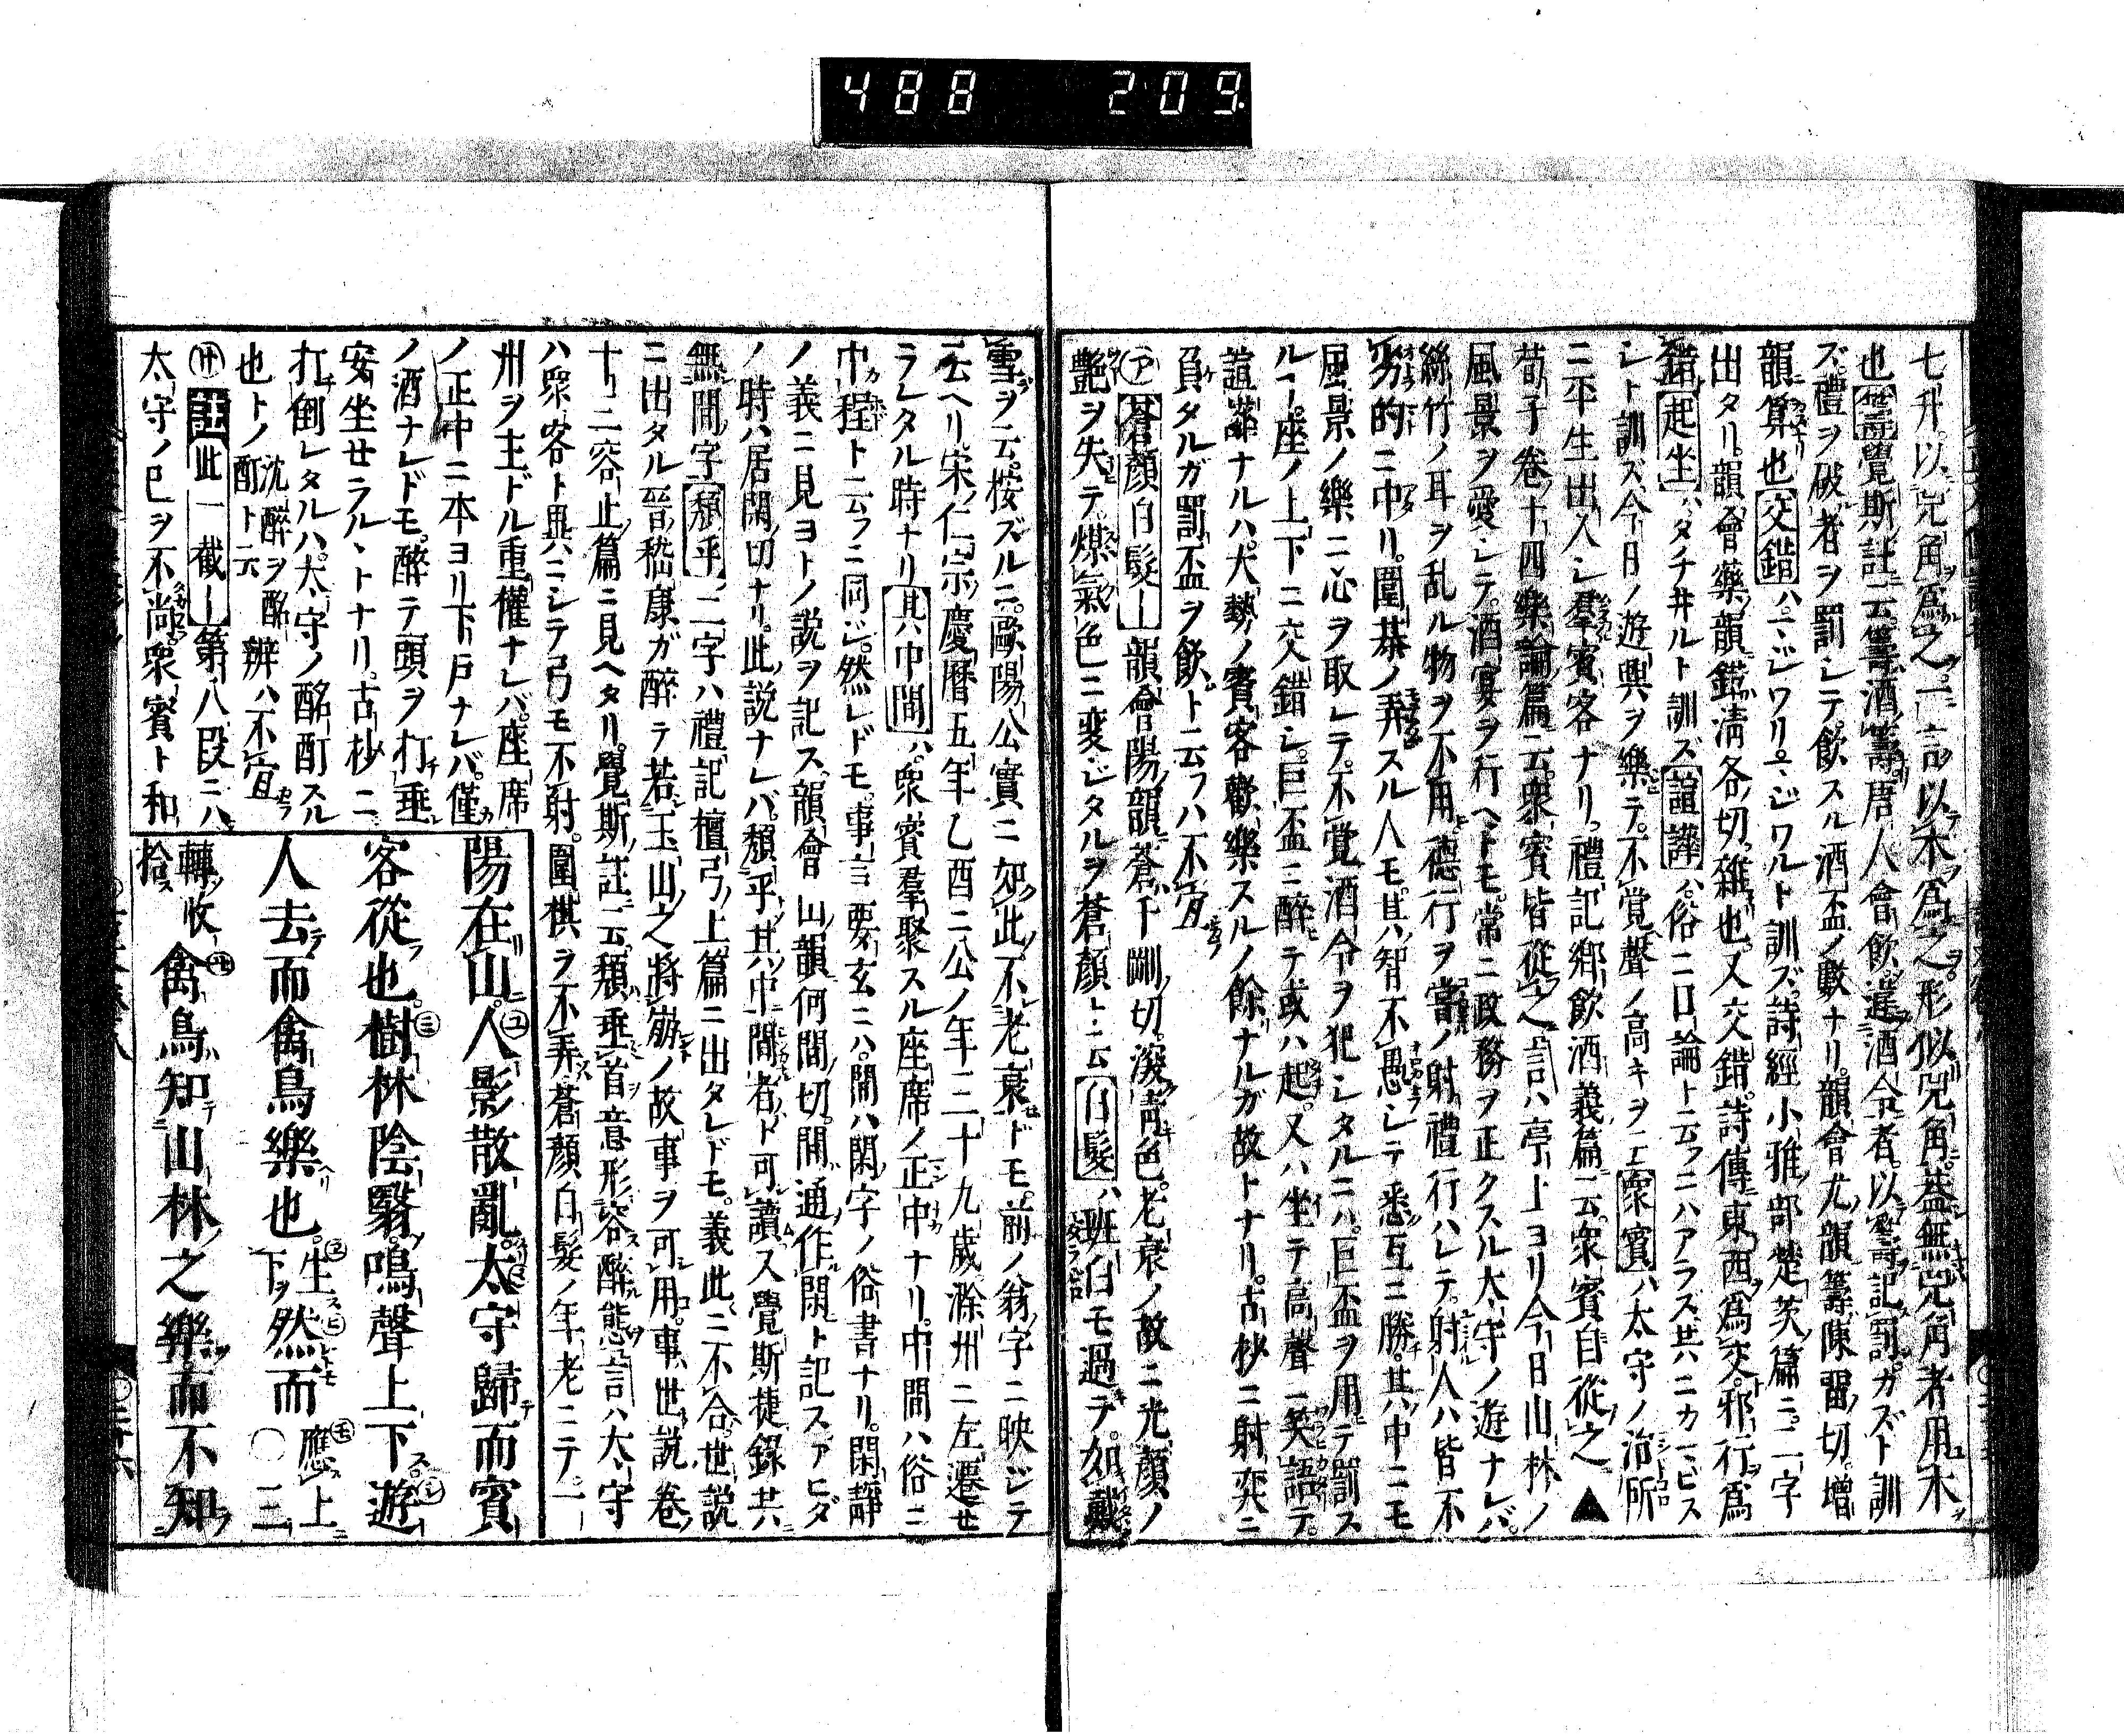 488 209
七升以兕角爲之一言以木爲之形似兕角葢無兕角者用木
也籌覺斯註云籌酒籌唐人會飲違酒令者以籌記罰カズト訓
ズ禮ヲ破者ヲ罰シテ飲スル酒盃ノ數ナリ韻會尤韻籌陳畱切増
韻算也交錯ハマジワリマジワルト訓ズ詩經小雅部楚茨篇ニ二字
出タリ韻會藥韻錯清各切雜也又交錯詩傳東西爲交邪行爲
錯起坐ハタチ井ルト訓ズ諠譁ハ俗ニ口論ト云フニハアラズ共ニカマビス
シト訓ズ今日ノ遊興ヲ樂テ不覚聲ノ高キヲ云衆賓ハ太守ノ治所
ニ平生出入シ羣賓客ナリ禮記郷飲酒義篇云衆賓自從之▲
荀子卷十四樂論篇云衆賓皆從之言ハ亭上ヨリ今日山林ノ
風景ヲ愛シテ酒宴ヲ行ヘトモ常ニ政務ヲ正クスル太守ノ遊ナレバ
絲竹ノ耳ヲ乱ル物ヲ不用德行ヲ當ノ射禮行ハレテ射人ハ皆不
労的ニ中リ圍碁ノ弄スル人モ其智不愚シテ悉互ニ勝其中ニモ
風景ノ樂ニ心ヲ取レテ不覚酒令ヲ犯シタルニハ巨盃ヲ用テ罰ス
ル丁座ノ上下ニ交錯シ巨盃ニ醉テ或ハ起又ハ坐テ高聲笑語テ
諠譁ナルハ大勢ノ賓客歡樂スルノ餘ナルガ故トナリ古抄ニ射奕ニ
負タルガ罰盃ヲ飲ト云フハ不宜
㋐蒼顏白髮｜韻會陽韻蒼千剛切深青色老衰ノ故ニ光顏ノ
艶ヲ失テ煤氣色ニ変ジタルヲ蒼顏ト云白髮ハ班白モ過テ如戴
雪ヲ云桉ズルニ歐陽公實ニ如此不老衰ドモ前ノ翁字ニ映ジテ
云ヘリ宋仁宗慶曆五年乙酉ニ公ノ年三十九歳滁州ニ左遷せ
ラレタル時ナリ其中間ハ衆賓羣聚スル座席ノ正中ナリ中間ハ俗ニ
中程ト云フニ同ジ然レドモ事言要玄ニハ間ハ閑字ノ俗書ナリ閑靜
ノ義ニ見ヨトノ説ヲ記ス韻會山韻何間切間通作閑ト記スアヒダ
ノ時ハ居閑切ナリ此説ナレバ頽乎其中間者ト可讀ス覺斯捷錄其
無間字頽乎二字ハ禮記檀弓上篇ニ出タレドモ義此ニ不合世説
ニ出タル晉嵇康ガ醉テ若玉山之將崩ノ故事ヲ可用事世説卷
十二容止篇ニ見ヘタリ覺斯註云頽垂首意形容醉態言ハ太守
ハ衆客ト異ニシテ弓モ不射圍棋ヲ不弄蒼顏白髮ノ年老ニテ一
州ヲ主ドル重催ナレバ座席
ノ正中ニ本ヨリ下戸ナレバ僅
ノ酒ナレドモ醉テ頭ヲ打垂
安坐せラルヽトナリ古抄ニ
打倒レタルハ太守ノ酩酊スル
也トノ沈醉ヲ酩酊ト云辨ハ不宜
㊉註此一截｜第八段ニハ
太守ノ已ヲ不尚衆賓ト和
陽在山人影散亂太守歸而賓
客從也樹林陰翳鳴聲上下遊
人去而禽鳥樂也生下然而應上〇三
轉收拾禽鳥知山林之樂而不知